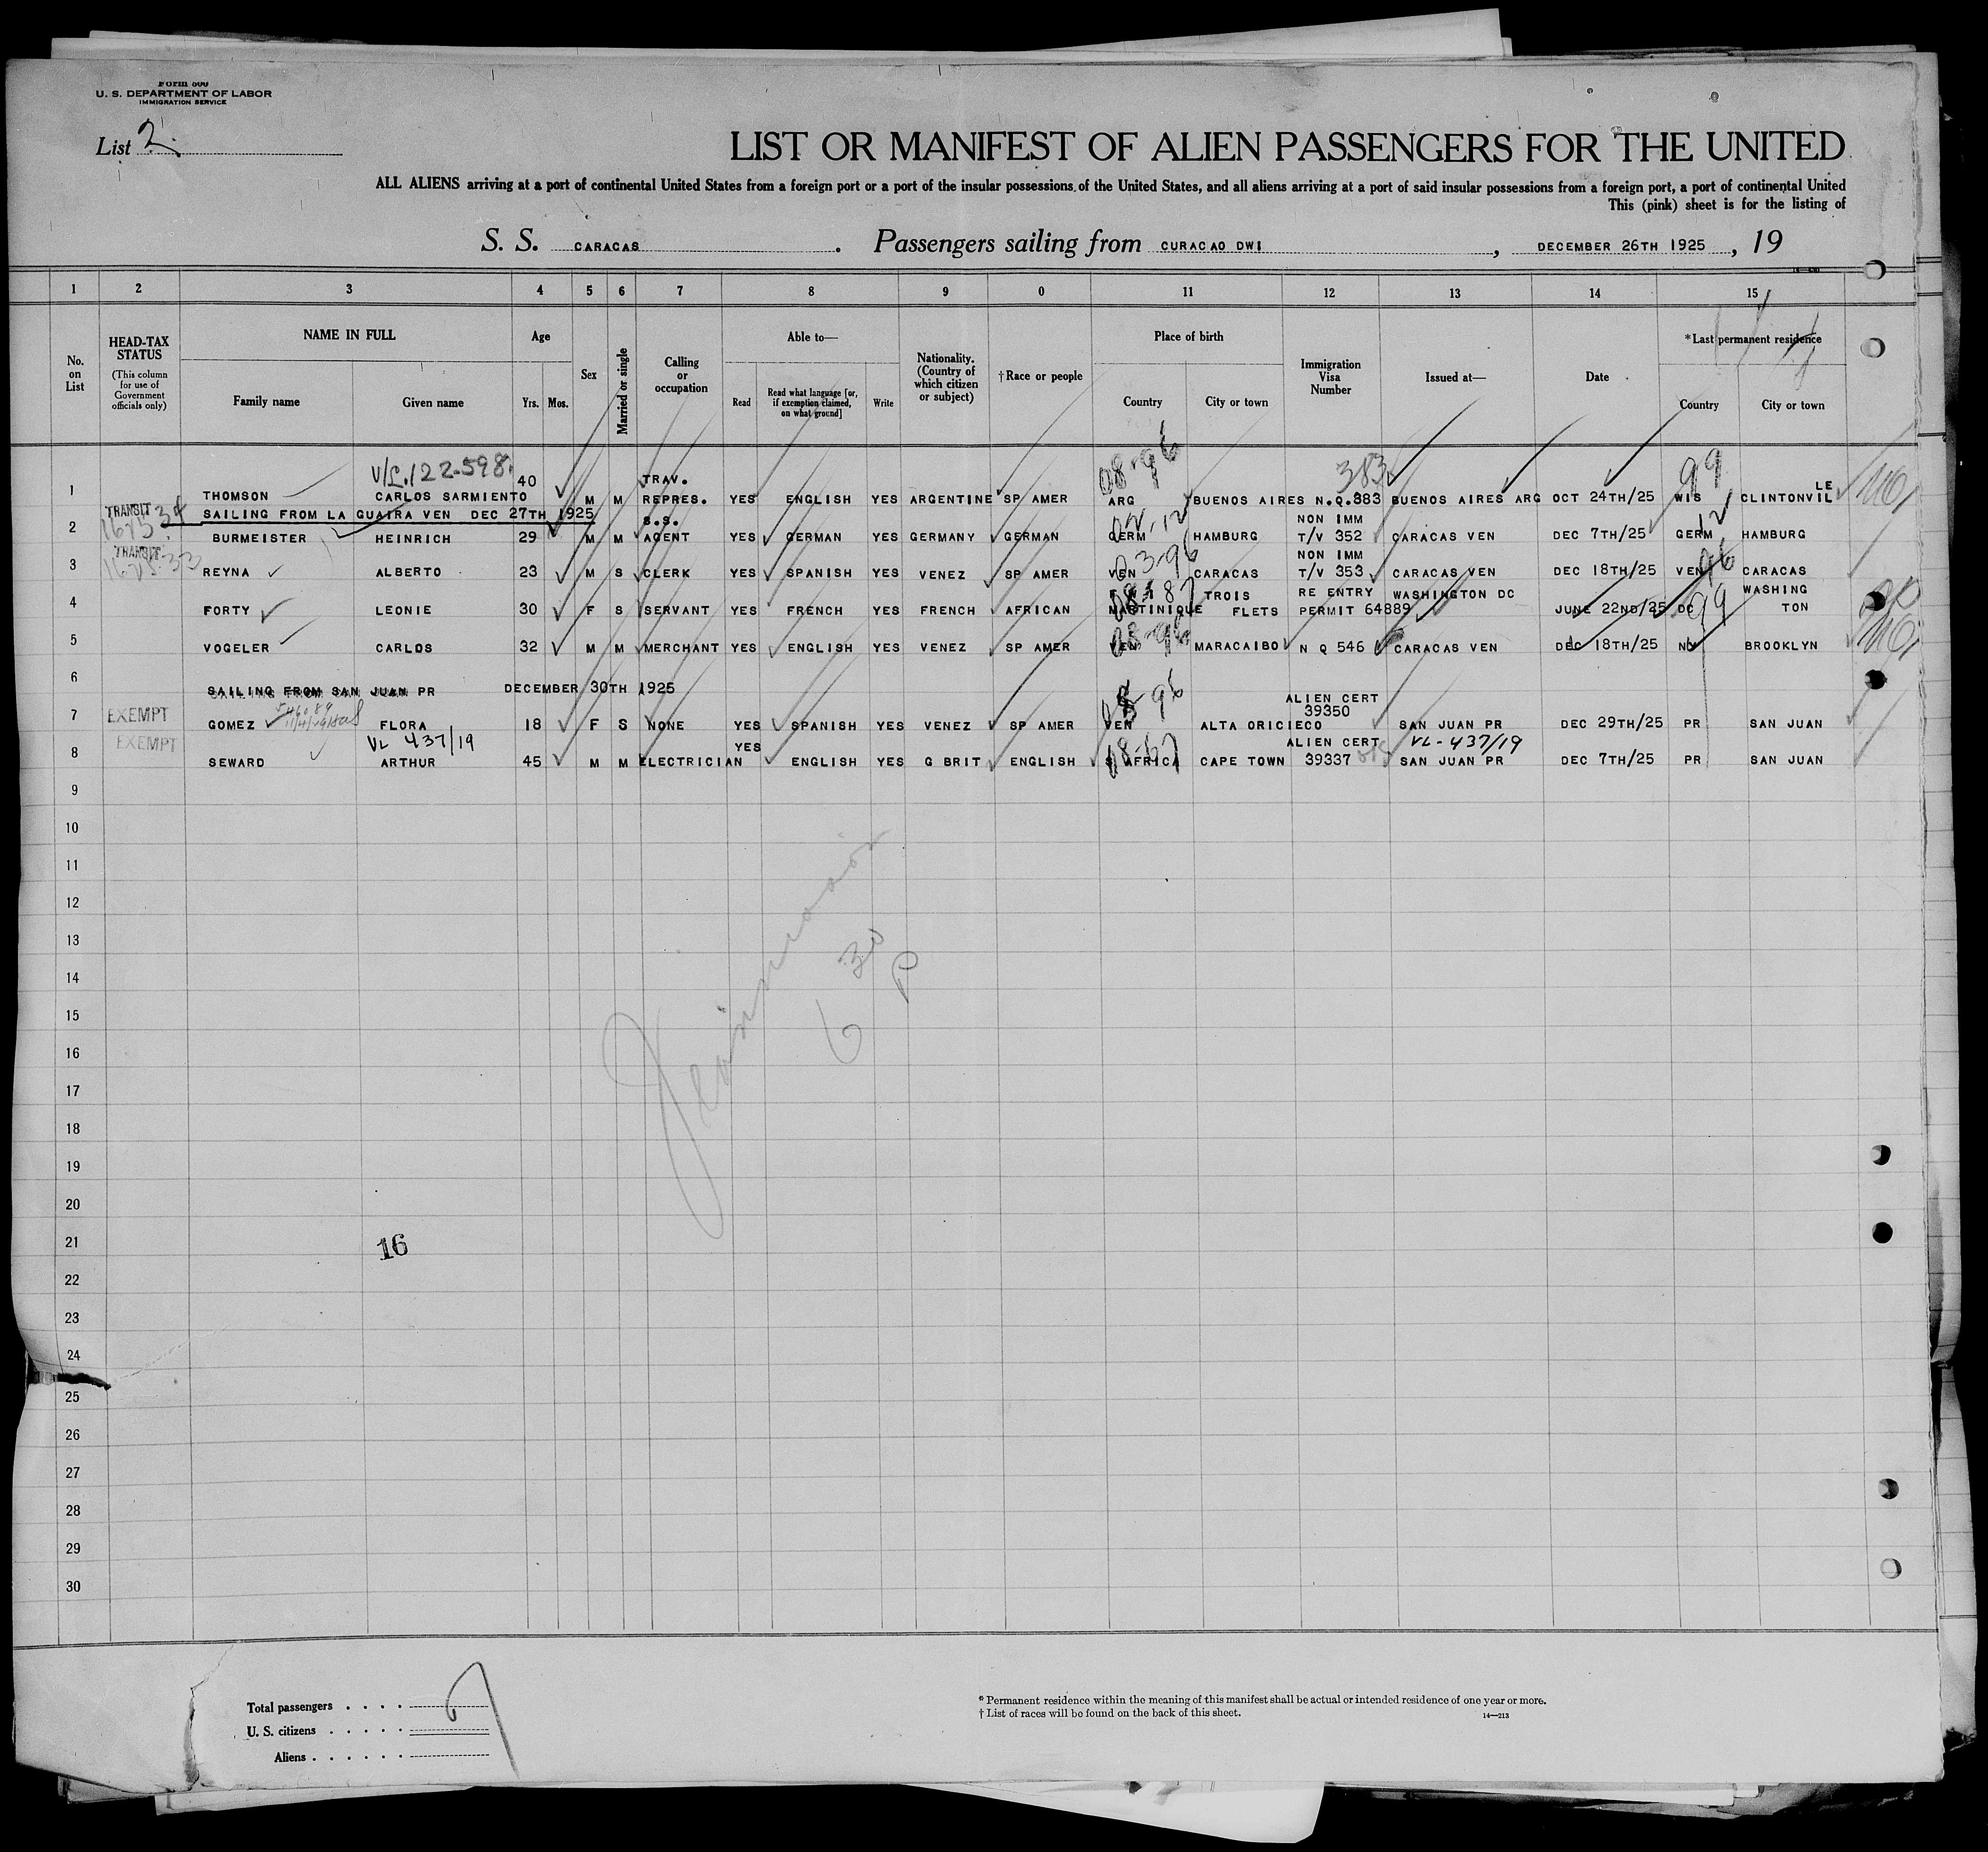 Form 500
U. S. DEPARTMENT OF LABOR
IMMIGRATION SERVICE
List 2.
LIST OR MANIFEST OF ALIEN PASSENGERS FOR THE UNITED
ALL ALIENS arriving at a port of continental United States from a foreign port or a port of the insular possessions of the United States, and all aliens arriving at a port of said insular possessions from a foreign port, a port of continental United
This (pink) sheet is for the listing of
S. S. CARACAS. Passengers sailing from CURACAO DWI, DECEMBER 26TH 1925, 19
1 2 3 4 5 6 7 8 9 0 11 12 13 14 15
No. on List
HEAD-TAX STATUS
(This column for use of Government officials only)
NAME IN FULL
Family name Given name
Age
Yrs. Mos.
Sex
Married or single
Calling or occupation
Able to—
Read Read what language [or, if exemption claimed, on what ground] Write
Nationality. (Country of which citizen or subject)
†Race or people
Place of birth
Country City or town
Immigration Visa Number
Issued at—
Date
*Last permanent residence
Country City or town
V/L.122-598. 08-96 383 99
1 THOMSON CARLOS SARMIENTO 40 M M TRAV. REPRES. YES ENGLISH YES ARGENTINE SP AMER ARG BUENOS AIRES N.Q.383 BUENOS AIRES ARG OCT 24TH/25 WIS CLINTONVILLE
SAILING FROM LA GUAIRA VEN DEC 27TH 1925
2 TRANSIT BURMEISTER HEINRICH 29 M M S.S. AGENT YES GERMAN YES GERMANY GERMAN GERM HAMBURG NON IMM T/V 352 CARACAS VEN DEC 7TH/25 GERM HAMBURG
3 TRANSIT REYNA ALBERTO 23 M S CLERK YES SPANISH YES VENEZ SP AMER VEN CARACAS NON IMM T/V 353 CARACAS VEN DEC 18TH/25 VEN CARACAS
4 FORTY LEONIE 30 F S SERVANT YES FRENCH YES FRENCH AFRICAN MARTINIQUE TROIS FLETS RE ENTRY PERMIT 64889 WASHINGTON DC JUNE 22ND/25 DC WASHINGTON
5 VOGELER CARLOS 32 M M MERCHANT YES ENGLISH YES VENEZ SP AMER VEN MARACAIBO N Q 546 CARACAS VEN DEC 18TH/25 BROOKLYN
6 SAILING FROM SAN JUAN PR DECEMBER 30TH 1925
7 EXEMPT GOMEZ FLORA 18 F S NONE YES SPANISH YES VENEZ SP AMER VEN ALTA ORICIECO ALIEN CERT 39350 SAN JUAN PR DEC 29TH/25 PR SAN JUAN
VL 437/19 VL-437/19
8 EXEMPT SEWARD ARTHUR 45 M M ELECTRICIAN YES ENGLISH YES G BRIT ENGLISH S AFRICA CAPE TOWN ALIEN CERT 39337 SAN JUAN PR DEC 7TH/25 PR SAN JUAN
9
10
11
12
13
14
15
16
17
18
19
20
21
22
23
24
25
26
27
28
29
30
6 30 P
16
Total passengers
U. S. citizens
Aliens
* Permanent residence within the meaning of this manifest shall be actual or intended residence of one year or more.
† List of races will be found on the back of this sheet.
14—213